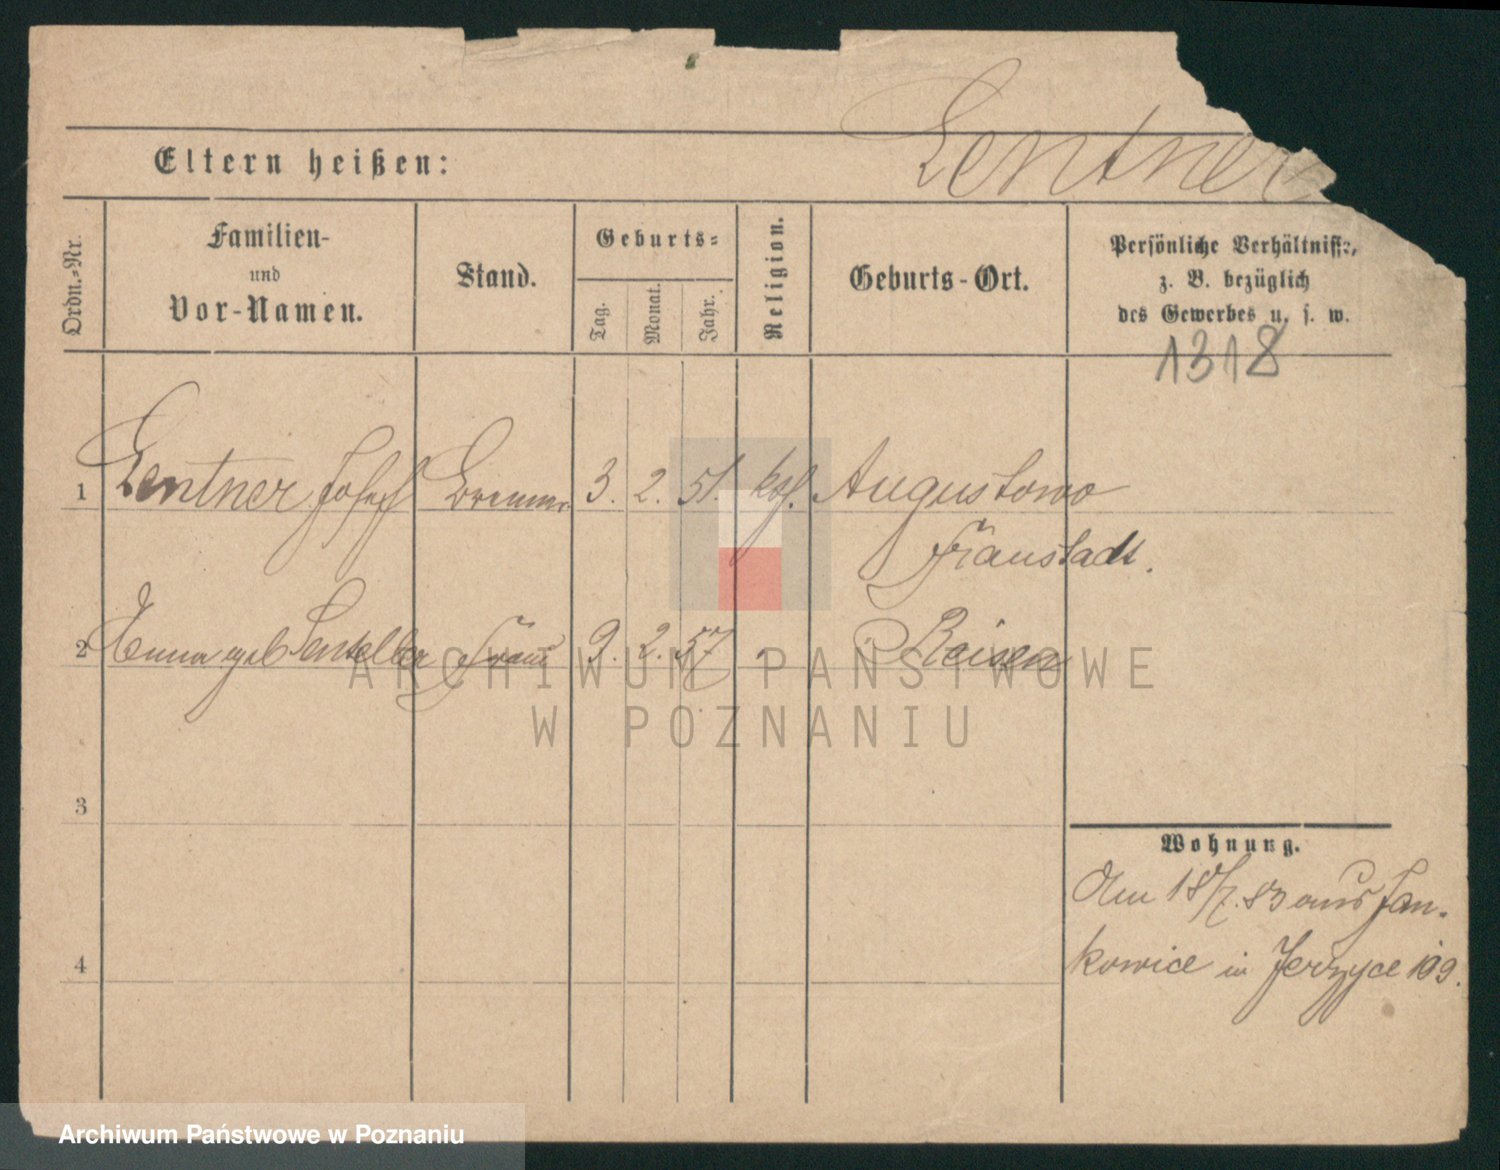 Lentner
Eltern heißen:
Ordn.-Nr.
Familien-
und
Vor-Namen.
Stand.
Geburts-
Tag.
Monat.
Jahr.
Religion.
Geburts-Ort.
Persönliche Verhältnisse,
z. B. bezüglich
des Gewerbes u. s. w.
1318
1 Lentner Josef 3. 2. 51. kath. Augustowo
Fraustadt.
2 Anna geb Frau 9. 2. 57 Reisen
3
4
Wohnung.
Am 18/7. 83 aus Jan-
kowice in Jerzyce 109.
ARCHIWUM PAŃSTWOWE
W POZNANIU
Archiwum Państwowe w Poznaniu